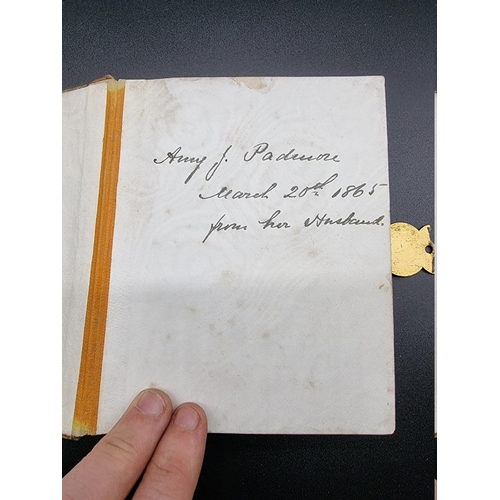 Amy J. Padmore
March 20th 1865
from her Husband.